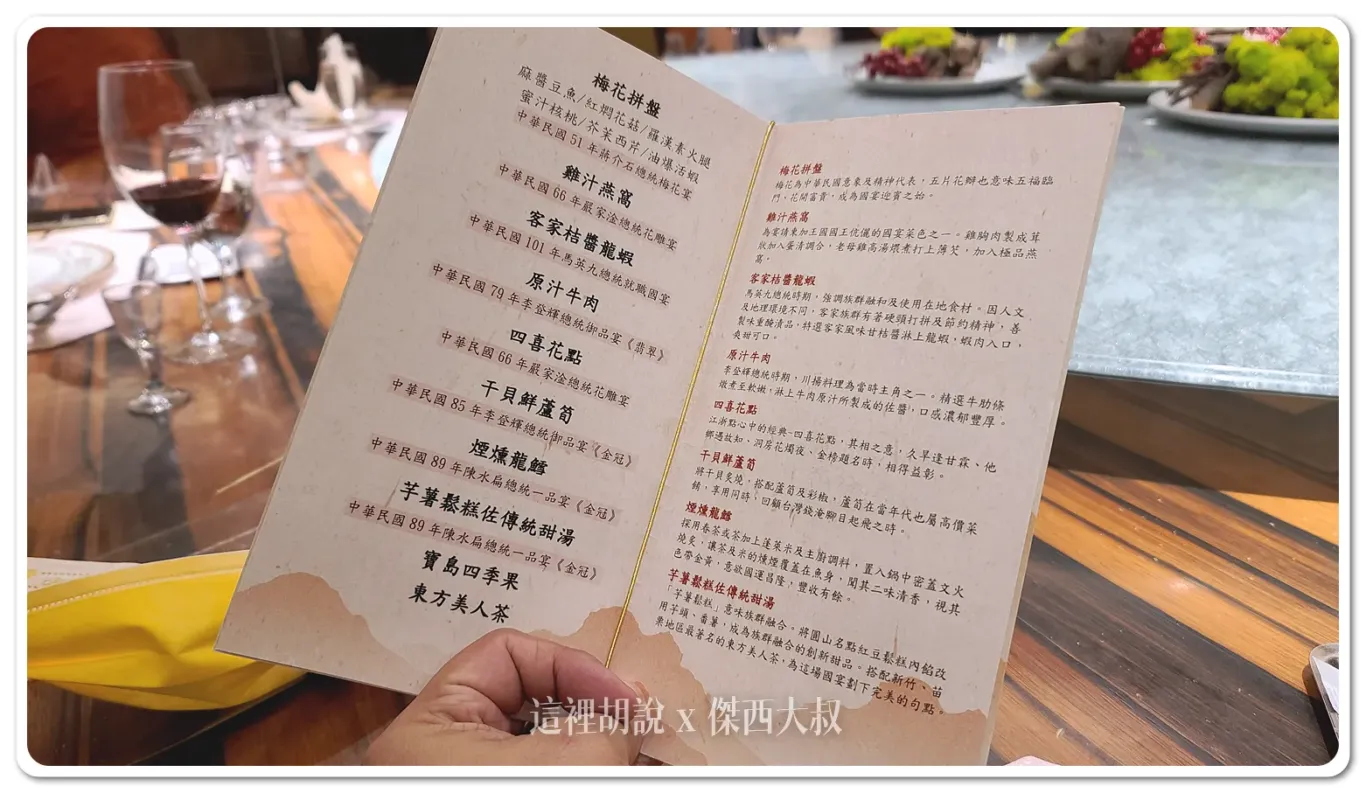 梅花拼盤
麻醬豆魚/紅燜花菇/羅漢素火腿
蜜汁核桃/芥茉西芹/油爆活蝦
中華民國51年蔣介石總統梅花宴
雞汁燕窩
中華民國66年嚴家淦總統花雕宴
客家桔醬龍蝦
中華民國101年馬英九總統就職國宴
原汁牛肉
中華民國79年李登輝總統御品宴《翡翠》
四喜花點
中華民國66年嚴家淦總統花雕宴
干貝鮮蘆筍
中華民國85年李登輝總統御品宴《金冠》
煙燻龍鱈
中華民國89年陳水扁總統一品宴《金冠》
芋薯鬆糕佐傳統甜湯
中華民國89年陳水扁總統一品宴《金冠》
寶島四季果
東方美人茶
梅花拼盤
梅花為中華民國意象及精神代表，五片花瓣也意味五福臨
門、花開富貴，成為國宴迎賓之始。
雞汁燕窩
為宴請東加王國國王伉儷的國宴菜色之一。雞胸肉製成茸
狀加入蛋清調合，老母雞高湯煨煮打上薄芡，加入極品燕
窩。
客家桔醬龍蝦
馬英九總統時期，強調族群融和及使用在地食材。因人文
及地理環境不同，客家族群有著硬頸打拼及節約精神，善
製味重醃漬品，特選客家風味甘桔醬淋上龍蝦，蝦肉入口，
爽甜可口。
原汁牛肉
李登輝總統時期，川揚料理為當時主角之一。精選牛肋條
燉煮至軟嫩，淋上牛肉原汁所製成的佐醬，口感濃郁豐厚。
四喜花點
江浙點心中的經典-四喜花點，其相之意，久旱逢甘霖、他
鄉遇故知、洞房花燭夜、金榜題名時，相得益彰。
干貝鮮蘆筍
將干貝炙燒，搭配蘆筍及彩椒，蘆筍在當年代也屬高價菜
餚，享用同時，回顧台灣錢淹腳目起飛之時。
煙燻龍鱈
採用春茶或茶加上蓬萊米及主廚調料，置入鍋中密蓋文火
燒炙，讓茶及米的燻煙覆蓋在魚身，聞其二味清香，視其
色帶金黃，意欲國運昌隆，豐收有餘。
芋薯鬆糕佐傳統甜湯
「芋薯鬆糕」意味族群融合。將圓山名點紅豆鬆糕內餡改
用芋頭、番薯，成為族群融合的創新甜品。搭配新竹、苗
栗地區最著名的東方美人茶，為這場國宴劃下完美的句點。
這裡胡說 x 傑西大叔